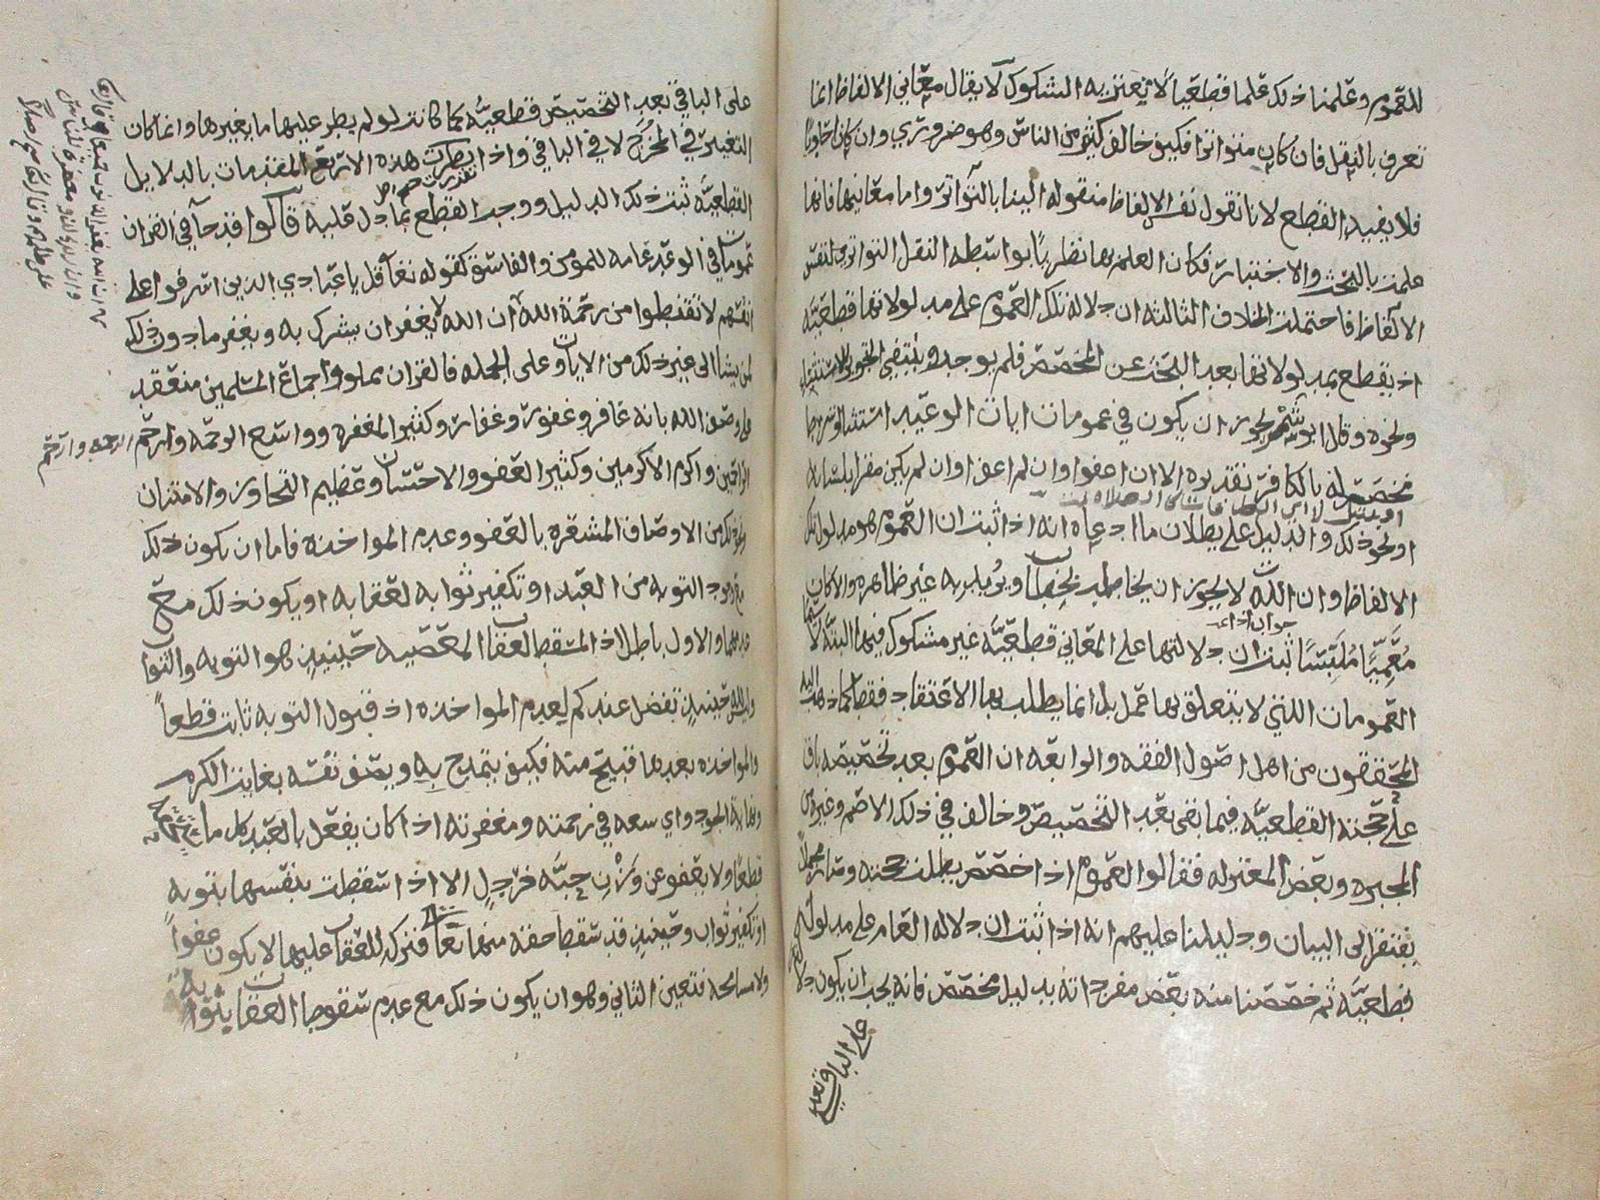 للعموم وعلمنا ذلك علما قطعيا لا تعتريه الشكوك لا يقال معاني الالفاظ انما
تعرف بالنقل فان كان متواترا فكيف خالف كثير من الناس وهو ضروري وان كان احاديا
فلا يفيد القطع لانا نقول نفس الالفاظ منقوله الينا بالتواتر واما معانيها فانها
علمت بالبحث والاختبار فكان العلم بها نظريا بواسطه النقل التواتري لنفس
الالفاظ فاحتملت الخلاف الثالثه ان دلاله تلك العموم على مدلولاتها قطعيه
اذ يقطع بمدلولاتها بعد البحث عن المخصص فلم يوجد وينتفي التجويز للاستثناء
ونحوه وقال ابو شمر يجوز ان يكون في عمومات ايات الوعيد استثنا او شرط
مخصص له بالكافر تقديره الا ان اعفوا وان لم اعف او ان لم يكن مقرا بلسانه
او نحو ذلك والدليل على بطلان ما ادعاه انه اذا ثبت ان العموم هو مدلول تلك
الالفاظ وان الله لا يجوز ان يخاطب بخطاب ويريد به غير ظاهره والا كان
معميا ملبسا ثبت ان دلالتها على المعاني قطعيه غير مشكوك فيها البته لا سيما
العمومات التي لا يتعلق بها عمل بل انما يطلب بها الاعتقاد فقط كما ذهب اليه
المحققون من اهل اصول الفقه والرابعه ان العموم بعد تخصيصه باق
على حجته القطعيه فيما بقي بعد التخصيص وخالف في ذلك الاصم وغيره من
المجبره وبعض المعتزله فقالوا العموم اذا خصص بطلت حجته وصار مجملا
يفتقر الى البيان ودليلنا عليهم انه اذا ثبت ان دلاله العام على مدلوله
قطعيه ثم خصصنا منه بعض مفرداته بدليل مخصص فانه يجب ان يكون دلا
على الباقي بعد
على الباقي بعد التخصيص قطعيه كما كانت لو لم يطر عليها ما يغيرها وانما كان
التغيير في المخرج لا في الباقي واذا تقررت هذه الاربع المقدمات بالدلايل
القطعيه ثبت ذلك الدليل ووجب القطع بما دل عليه قالوا قد جا في القران
عمومات في الوعد عامه للمومن والفاسق كقوله تعالى قل يا عبادي الذين اسرفوا على
انفسهم لا تقنطوا من رحمة الله ان الله لا يغفر ان يشرك به ويغفر ما دون ذلك
لمن يشا الى غير ذلك من الايات وعلى الجمله فالقران مملو واجماع المسلمين منعقد
على وصف الله بانه غافر وغفور وغفار وكثير المغفره وواسع الرحمه وارحم
الراحمين واكرم الاكرمين وكثير العفو والاحسان وعظيم التجاوز والامتنان
وغير ذلك من الاوصاف المشعره بالعفو وعدم المواخذه فاما ان يكون ذلك
مع وجود التوبه من العبد او تكفير ثوابه لعقابه او يكون ذلك مع
عدمهما والاول باطل اذ المسقط لعقاب المعصيه حينيذ هو التوبه والثواب
وليس لله حينيذ تفضل عندكم لعدم المواخذه اذ قبول التوبه ثابت قطعا
والمواخذه بعدها قبيح منه فكيف يتمدح به ويصف نفسه بغاية الكرم
ونهاية الجود واي سعه في رحمته ومغفرته اذا كان يفعل بالعبد كل ما
قطعا ولا يعفو عن وزن حبه خردل الا اذا سقطت بنفسها بتوبه
او تكفير ثواب وحينيذ قد سقط حقه منها تعالى فتركه للعقاب عليها لا يكون عفوا
ولا مسامحه فتعين الثاني وهو ان يكون ذلك مع عدم سقوط العقاب بتوبه